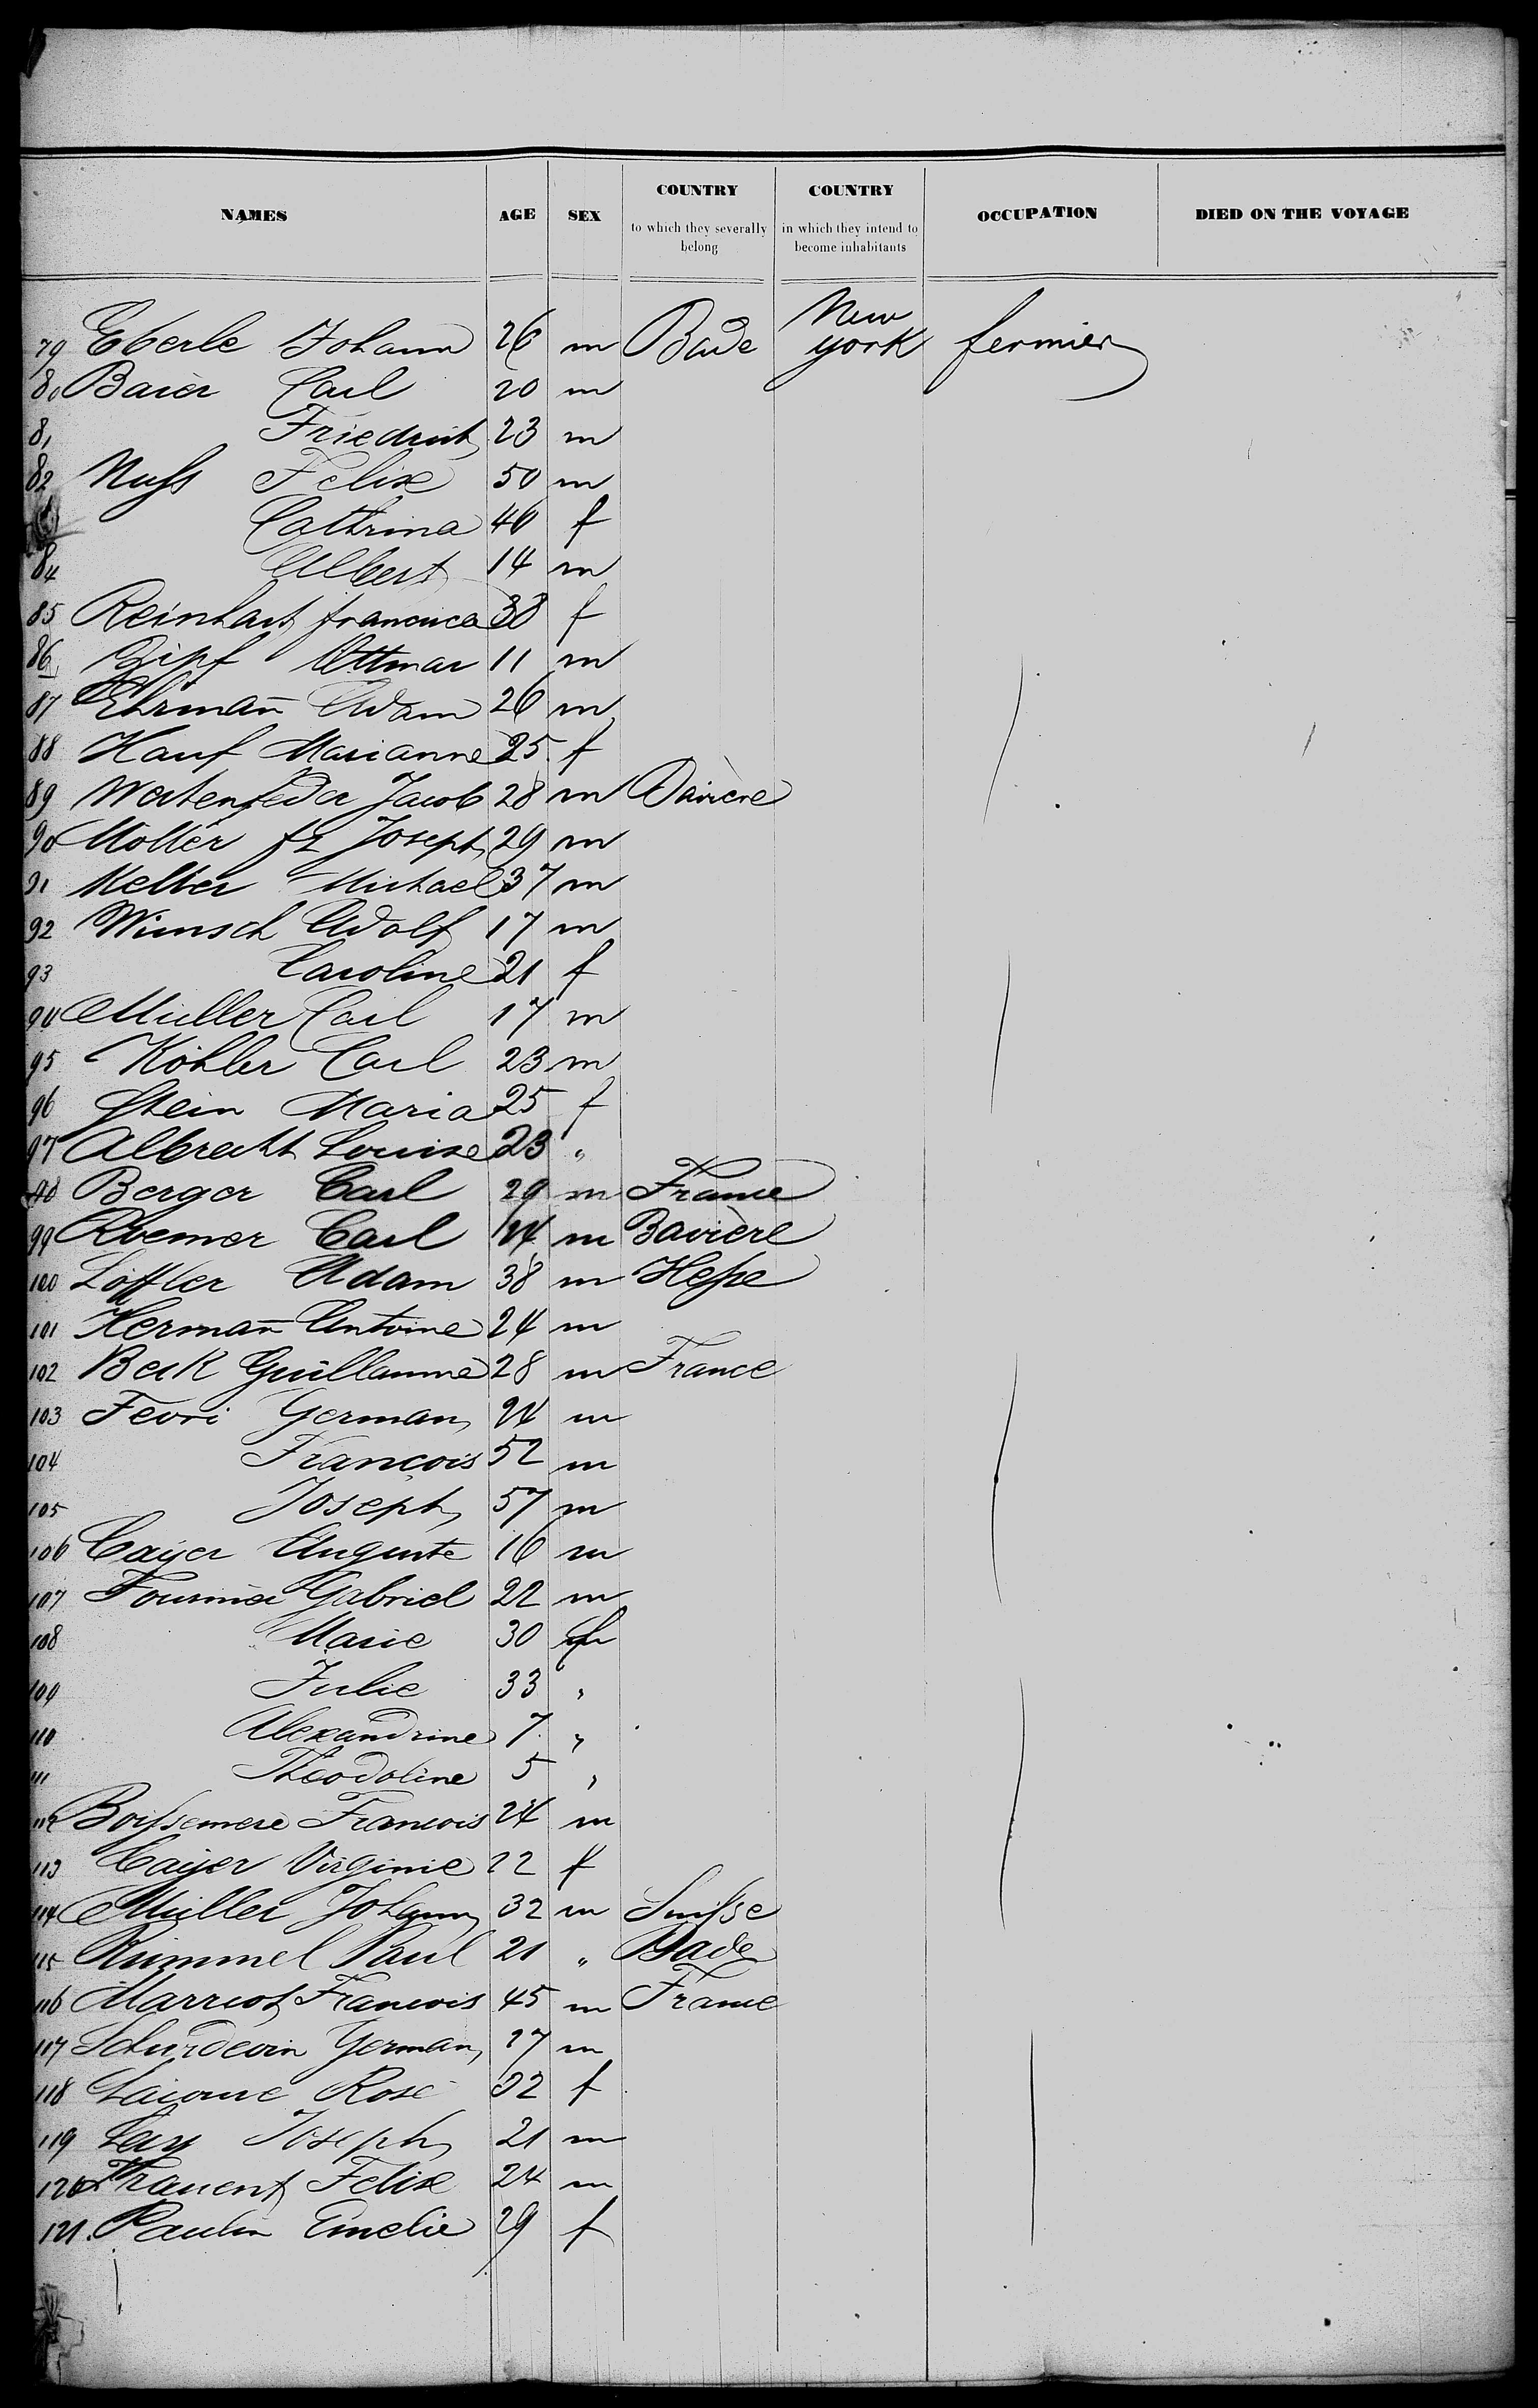 NAMES AGE SEX COUNTRY to which they severally belong COUNTRY in which they intend to become inhabitants OCCUPATION DIED ON THE VOYAGE
79 Eberle Johann 26 m Bade New york fermier
80 Baier Carl 20 m
81 Friedrich 23 m
82 Nuss Felix 50 m
Cathrina 40 f
84 Albert 14 m
85 Reinhart francisca 38 f
86 Zipf Ottmar 11 m
87 Ehrman̄ Adam 26 m
88 Hauf Marianne 25 f
89 Jacob 28 m Bavière
90 Moller fz Joseph 29 m
91 Melber Michael 37 m
92 Wunsch Adolf 17 m
93 Caroline 21 f
94 Müller Carl 17 m
95 Köhler Carl 23 m
96 Stein Maria 25 f
97 Albrecht Louise 23 "
98 Berger Carl 29 m France
99 Roemer Carl 24 m Bavière
100 Löffler Adam 38 m Hesse
101 Herman̄ Antoine 24 m
102 Beck Guillaume 28 m France
103 Fevri German 24 m
104 Francois 52 m
105 Joseph 57 m
106 Cayer Auguste 16 m
107 Fournier Gabriel 22 m
108 Marie 30 f
109 Julie 33 "
110 Alexandrine 7 "
111 Theodoline 5 "
112 Boissemere Francois 24 m
113 Cayer Virginie 22 f
114 Müller Johann 32 m Suisse
115 Kimmel Paul 21 " Bade
116 Marriot Francois 45 m France
117 German 27 m
118 Rose 32 f
119 Joseph 21 m
120 Felix 24 m
121. Paulin Emelie 29 f